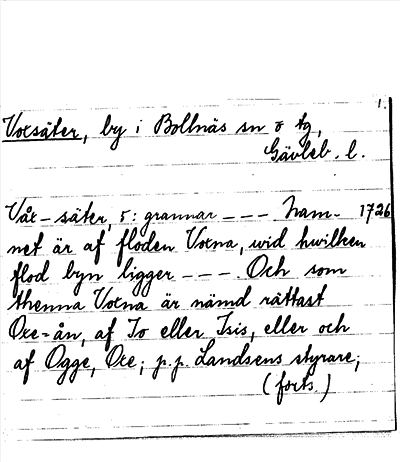 1.
Voxsäter, by i Bollnäs sn o tg,
Gävleb. l.
Våx-säter, 5: grannar --- Nam- 1726
net är af floden Voxna, wid hwilken
flod byn ligger ---. Och som
thenna Voxna är nämd rättast
Oxe-ån, af Io eller Isis, eller och
af Ogge, Oxe; p.p. Landsens styrare;
(forts.)